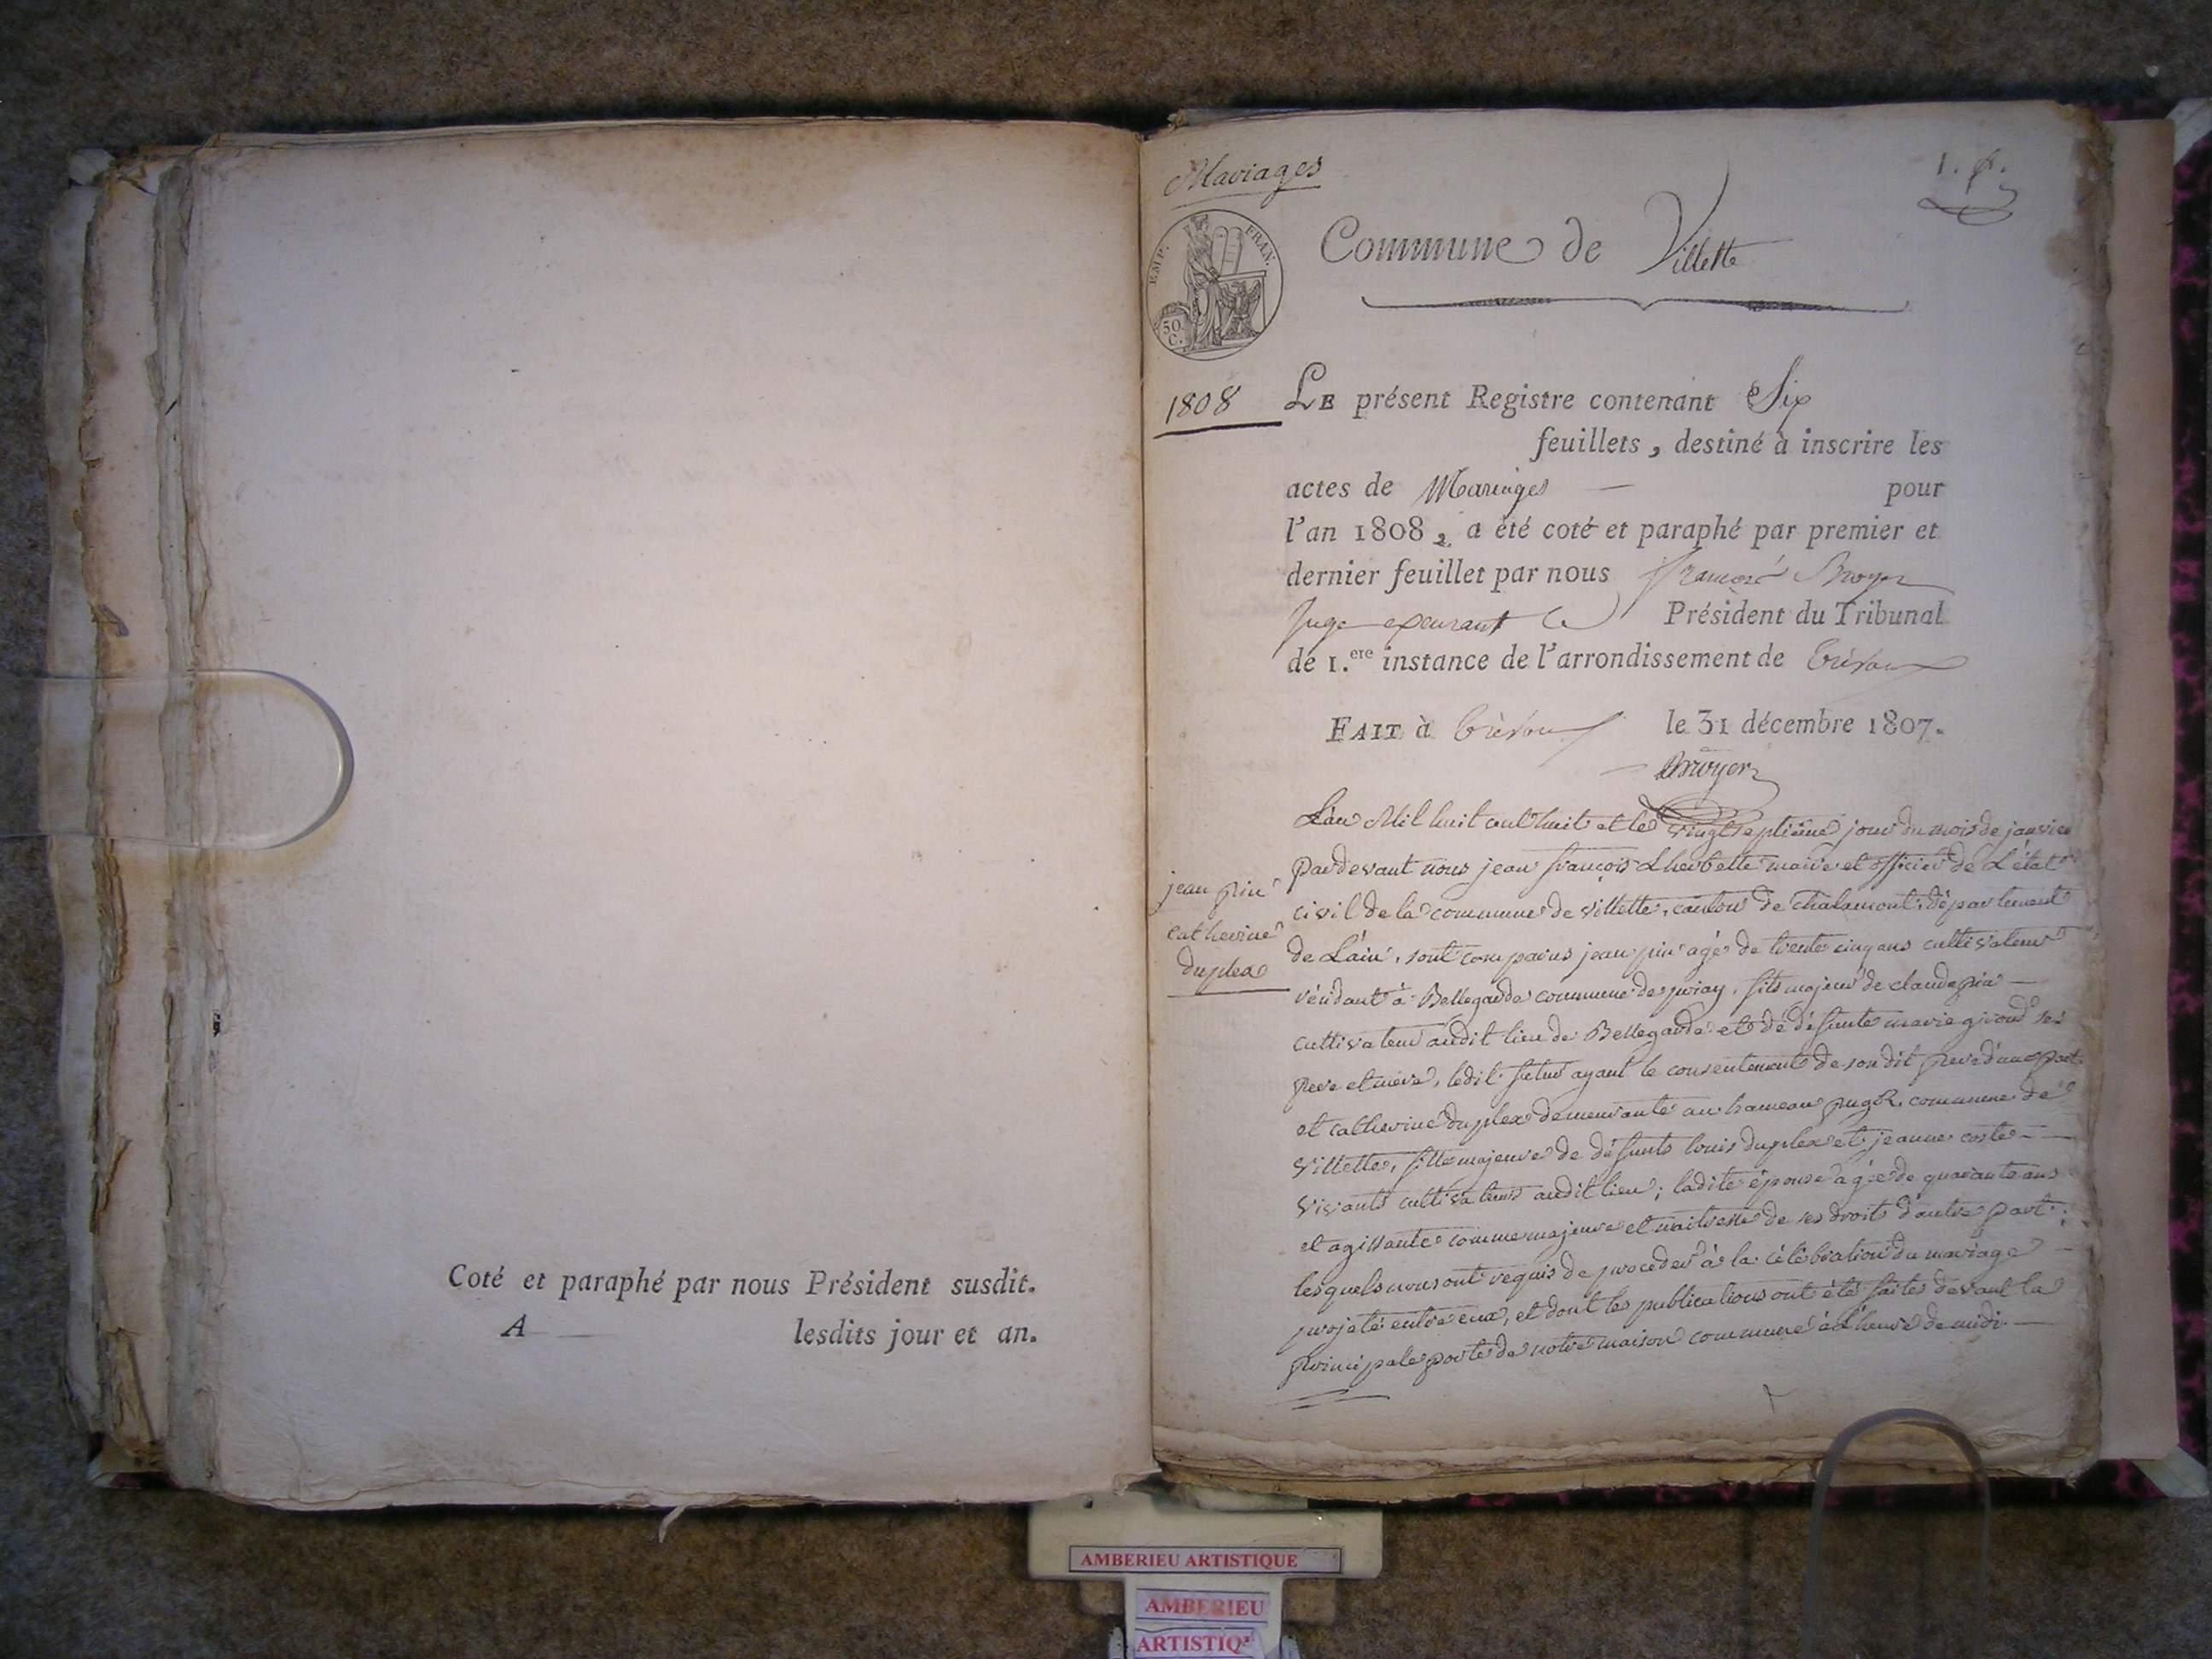 Coté et paraphé par nous Président susdit.
A lesdits jour et an.
Mariages
1.
EMP. FRAN.
50 C.
Commune de Villette
1808
LE présent Registre contenant Six
feuillets, destiné à inscrire les
actes de Mariages — pour
l'an 1808, a été coté et paraphé par premier et
dernier feuillet par nous François Broyer
Juge exerçant le Président du Tribunal
de 1.ere instance de l'arrondissement de Trévoux
FAIT à Trévoux le 31 décembre 1807.
Broyer
jean pin
catherine
duplex
L'an Mil huit cent huit et le vingt septième jour du mois de janvier
pardevant nous jean françois Lherbette maire et officier de L'état
civil de la commune de villette, canton de chalamont, département
de L'ain, sont comparus jean pin agé de trente cinq ans cultivateur
résidant à Bellegarde commune de priay, fils majeur de claude pin —
cultivateur audit lieu de Bellegarde et de défunte marie girond ses
pere et mère, ledit futur ayant le consentement de son dit pere d'une part
et catherine duplex demeurante au hameau commune de
Villette, fille majeure de défunts louis duplex et jeanne coste —
vivants cultivateurs audit lieu; ladite épouse agée de quarante ans
et agissante comme majeure et maitresse de ses droits d'autre part;
lesquels nous ont requis de procéder à la célébration du mariage
projeté entre eux, et dont les publications ont été faites devant la
principale porte de notre maison commune à L'heure de midi —
AMBERIEU ARTISTIQUE
AMBERIEU
ARTISTIQ